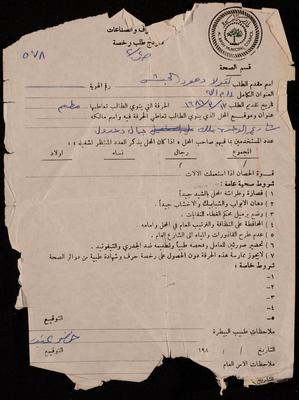 حرف وصناعات
نموذج طلب رخصة
٥٧٨
AL-BIREH MUNICIPAL COUNCIL
قسم الصحة
اسم مقدم الطلب نقولا داهود رقم الهوية
العنوان الكامل رام الله
تاريخ تقديم الطلب الحرفة التي ينوي الطالب تعاطيها مطعم
عنوان وموقع المحل الذي ينوي الطالب تعاطي الحرفة فيه واسم مالكه
شارع
عدد المستخدمين بما فيهم صاحب المحل و اذا كان المحل يذكر العدد المنتظر تشغيله :
المجموع رجال نساء اولاد
قوة الحصان اذا استعملت الالات
شروط صحية عامة :
١ - قصارة وطراشة المحل بالشيد جيداً
٢ - دهان الابواب والشبابيك والاخشاب جيداً
٣ - وضع برميل محكم الغطاء للنفايات .
٤ - المحافظة على النظافة والترتيب العام في المحل وامامه .
٥ - عدم طرح القاذورات والمياه الى الشارع العام .
٦ - تحضير صورتين للعامل وفحصه طبياً وتطعيمه ضد الجدري والتيفوئيد .
٧ - لا يجوز ممارسة هذه الحرفة دون الحصول على رخصة حرف وشهادة طبية من دوائر الصحة
شروط خاصة :
١ -
٢ -
٣ -
٤ -
٥ -
ملاحظات طبيب البيطرة التوقيع
التاريخ / / ١٩٨ التوقيع
ملاحظات الامن العام
التاريخ